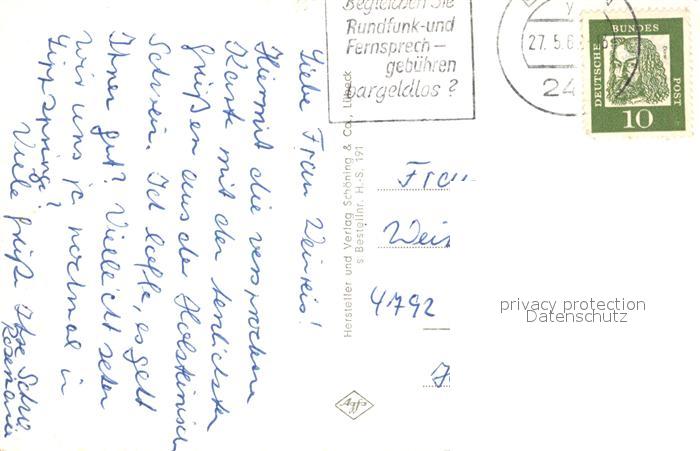 Begleichen Sie
Rundfunk-und
Fernsprech-
gebühren
bargeldlos?
27.5.6
24
DEUTSCHE BUNDESPOST
10
Liebe Frau Weireis!
Hiermit die versprochene
Karte mit den herzlichsten
Grüßen aus der Holsteinisch
Schweiz. Ich hoffe, es geht
Ihnen gut? Vielleicht sehen
wir uns ja nochmal in
Lippspringe?
Viele Grüße Ihre
Rosemarie
Hersteller und Verlag Schöning & Co., Lübeck
s Bestellnr. H.-S. 191
Frau
Wei
4792
Agfa
privacy protection
Datenschutz